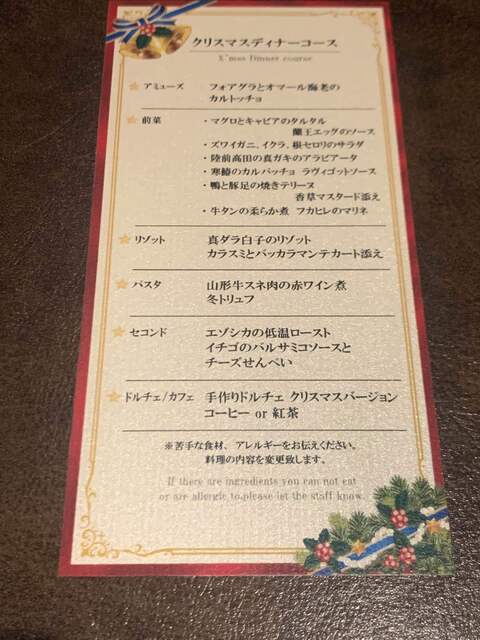 クリスマスディナーコース
X'mas Dinner course
アミューズ フォアグラとオマール海老の
カルトッチョ
前菜 ・マグロとキャビアのタルタル
蘭王エッグのソース
・ズワイガニ、イクラ、根セロリのサラダ
・陸前高田の真ガキのアラビアータ
・寒鰆のカルパッチョ ラヴィゴットソース
・鴨と豚足の焼きテリーヌ
香草マスタード添え
・牛タンの柔らか煮 フカヒレのマリネ
リゾット 真ダラ白子のリゾット
カラスミとバッカラマンテカート添え
パスタ 山形牛スネ肉の赤ワイン煮
冬トリュフ
セコンド エゾシカの低温ロースト
イチゴのバルサミコソースと
チーズせんべい
ドルチェ/カフェ 手作りドルチェ クリスマスバージョン
コーヒー or 紅茶
※苦手な食材、アレルギーをお伝えください。
料理の内容を変更致します。
If there are ingredients you can not eat
or are allergic to,please let the staff know.